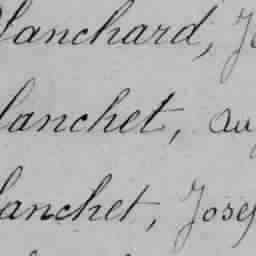 lanchard, J
lanchet, au
lanchet, Josep